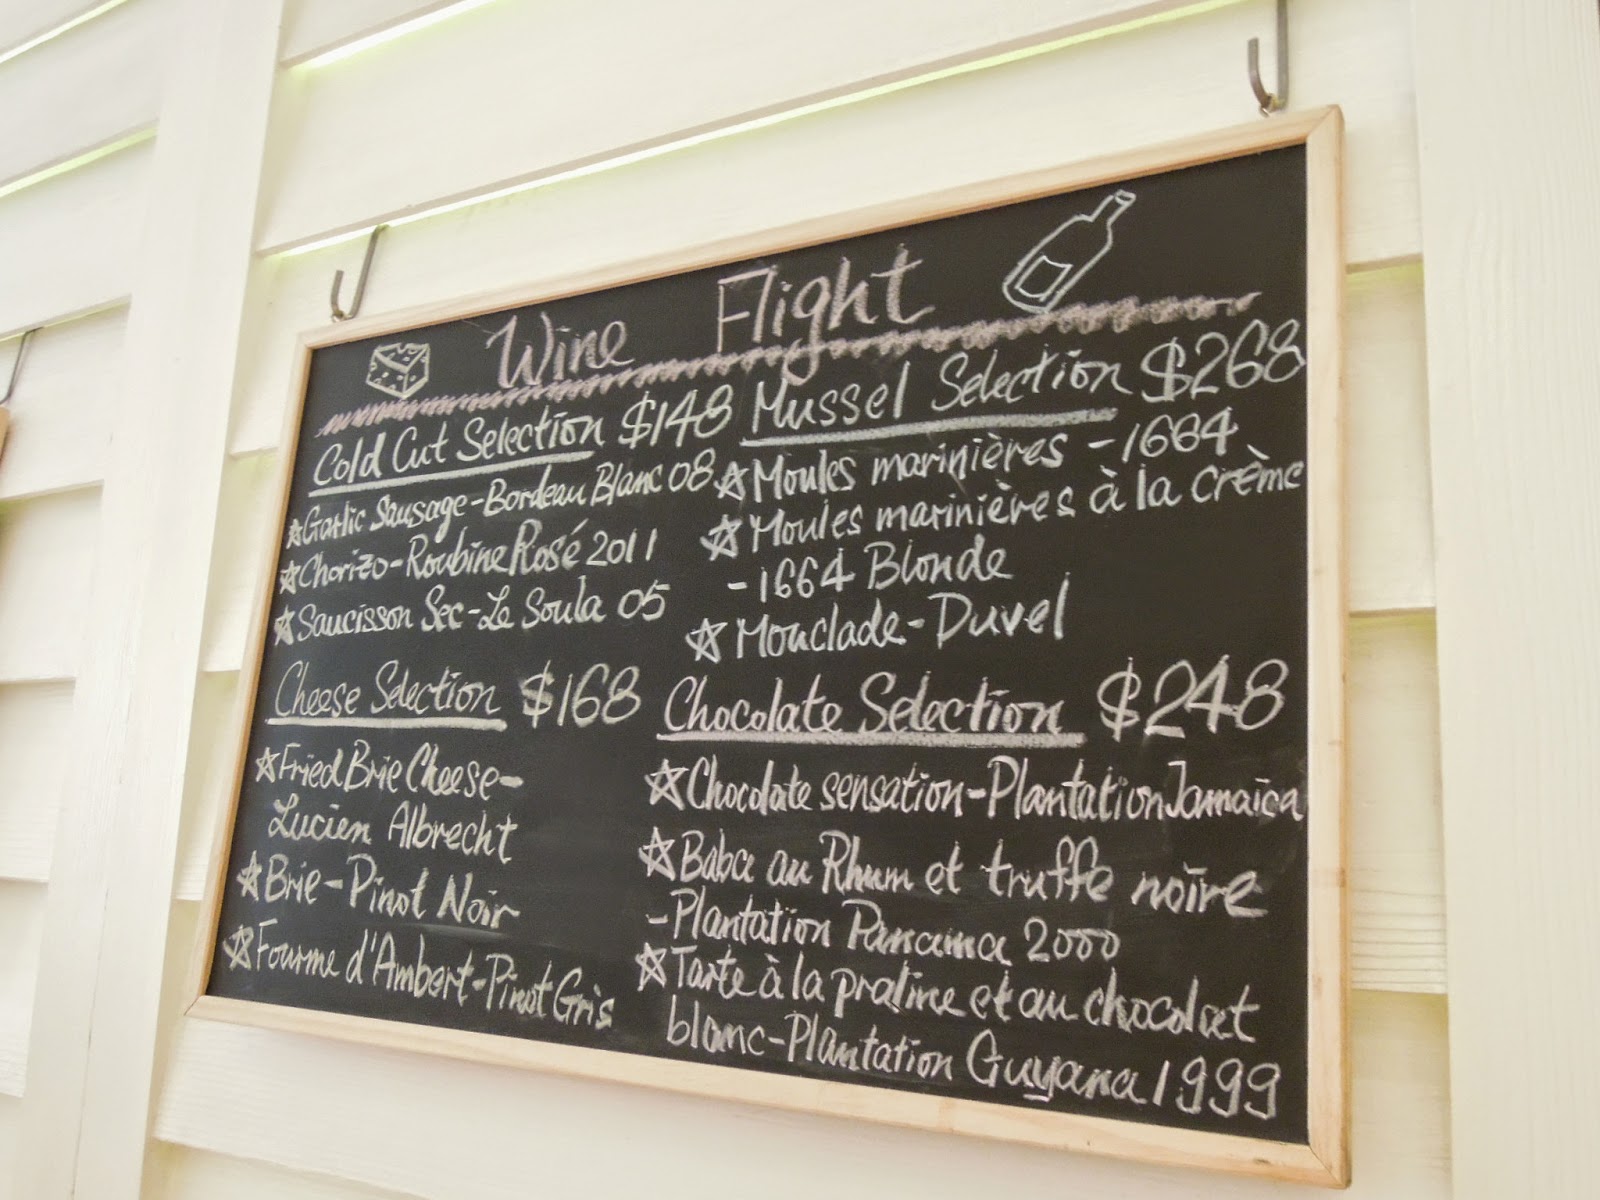 Wine Flight
Cold Cut Selection $148
☆Garlic Sausage-Bordeau Blanc 08
☆Chorizo-Roubine Rosé 2011
☆Saucisson Sec-Le Soula 05
Cheese Selection $168
☆Fried Brie Cheese-
Lucien Albrecht
☆Brie-Pinot Noir
☆Fourme d'Ambert-Pinot Gris
Mussel Selection $268
☆Moules marinières -1664
☆Moules marinières à la crème
-1664 Blonde
☆Mouclade-Duvel
Chocolate Selection $248
☆Chocolate sensation-Plantation Jamaïca
☆Baba au Rhum et truffe noïre
-Plantatïon Panama 2000
☆Tarte à la praline et au chocolat
blanc-Plantation Guyana 1999